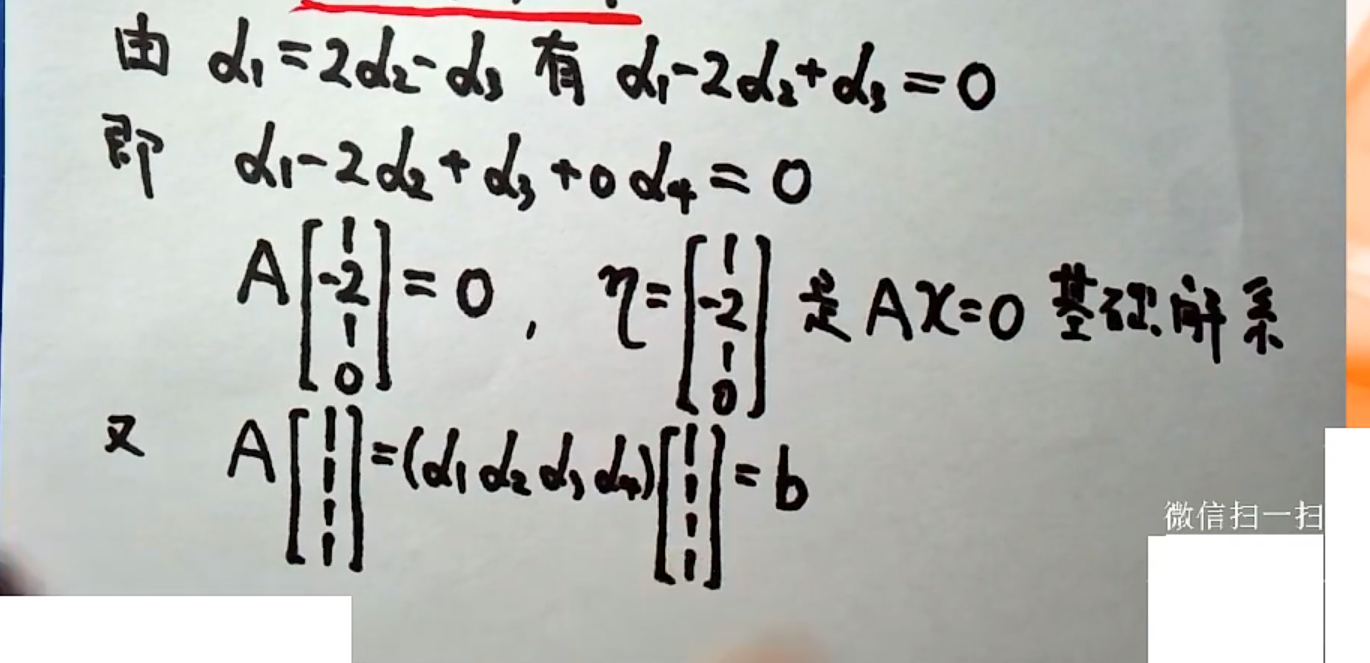 由 α₁=2α₂-α₃ 有 α₁-2α₂+α₃=0
即 α₁-2α₂+α₃+0α₄=0
A[1 -2 1 0]=0, η=[1 -2 1 0] 是 Ax=0 基础解系
又 A[1 1 1 1]=(α₁ α₂ α₃ α₄)[1 1 1 1]=b
微信扫一扫